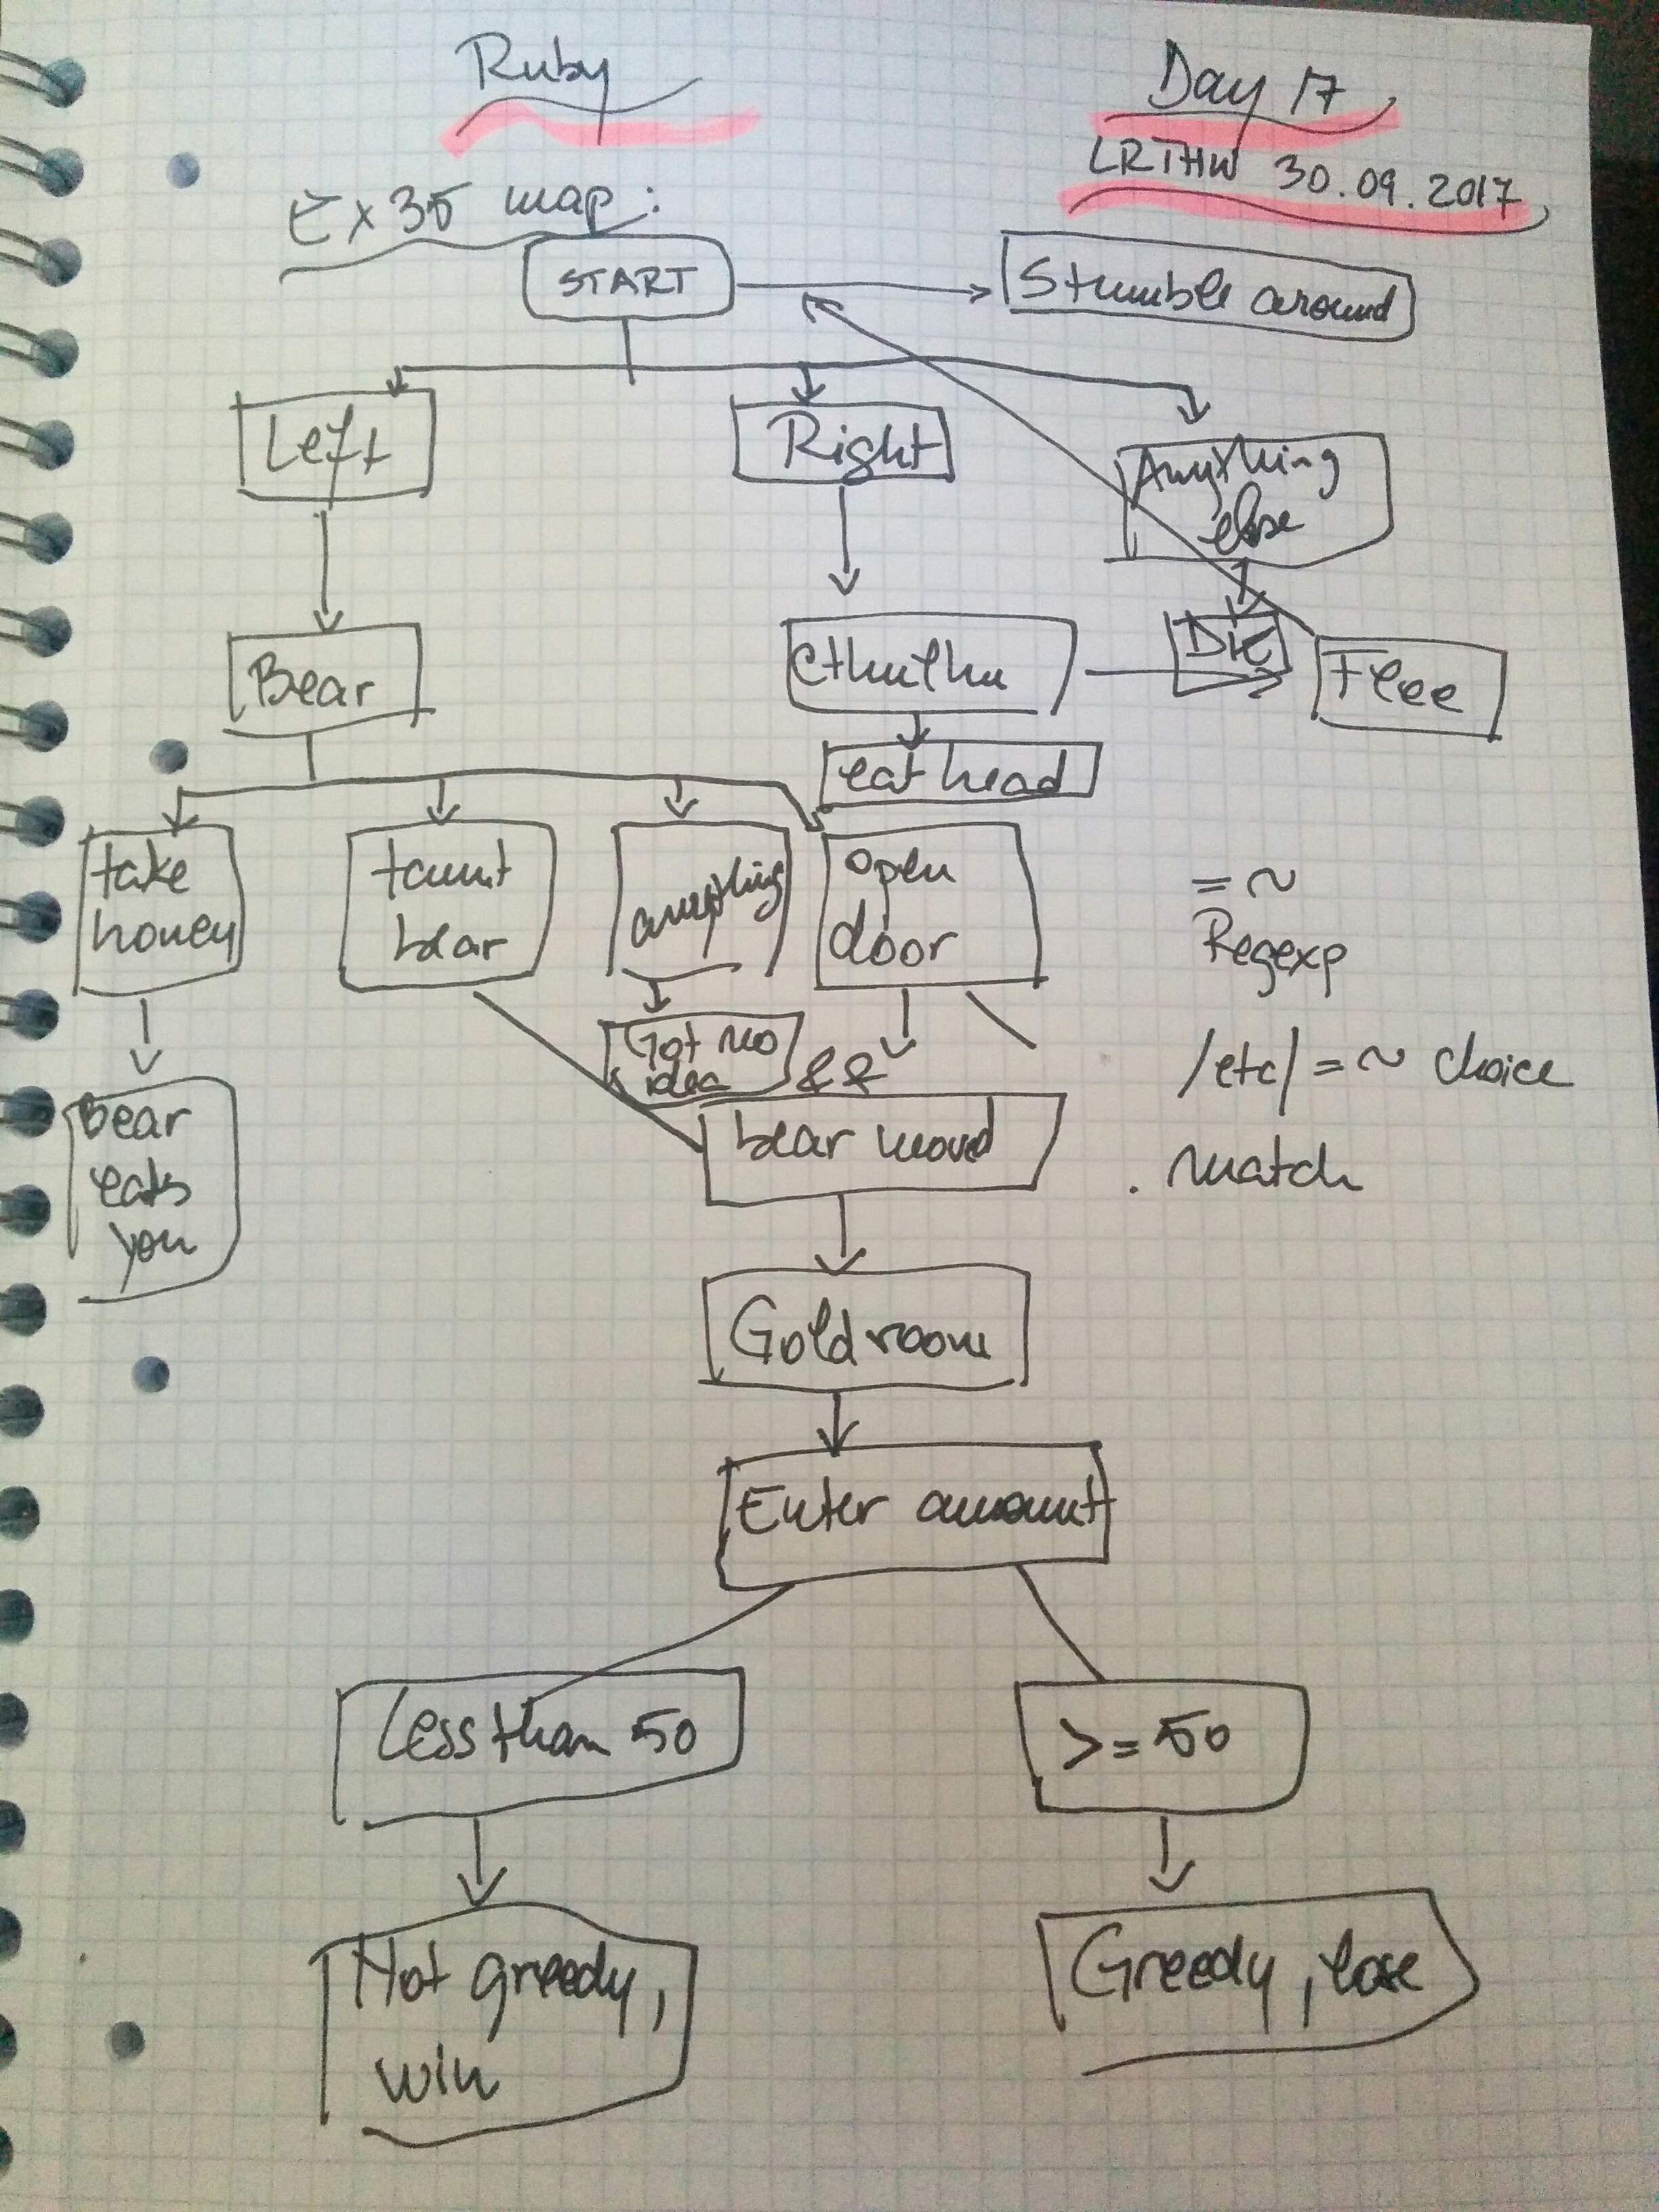 Ruby
Day 17
LRTHW 30.09.2017
Ex 35 map:
START
Stumble around
Left
Right
Anything
else
Bear
Cthulhu
DIE
Flee
eat head
take
honey
taunt
bear
anything
open
door
=~
Regexp
Got no
idea
&&
/etc/ =~ choice
Bear
eats
you
bear moved
. match
Gold room
Enter amount
Less than 50
>= 50
Not greedy,
win
Greedy, lose